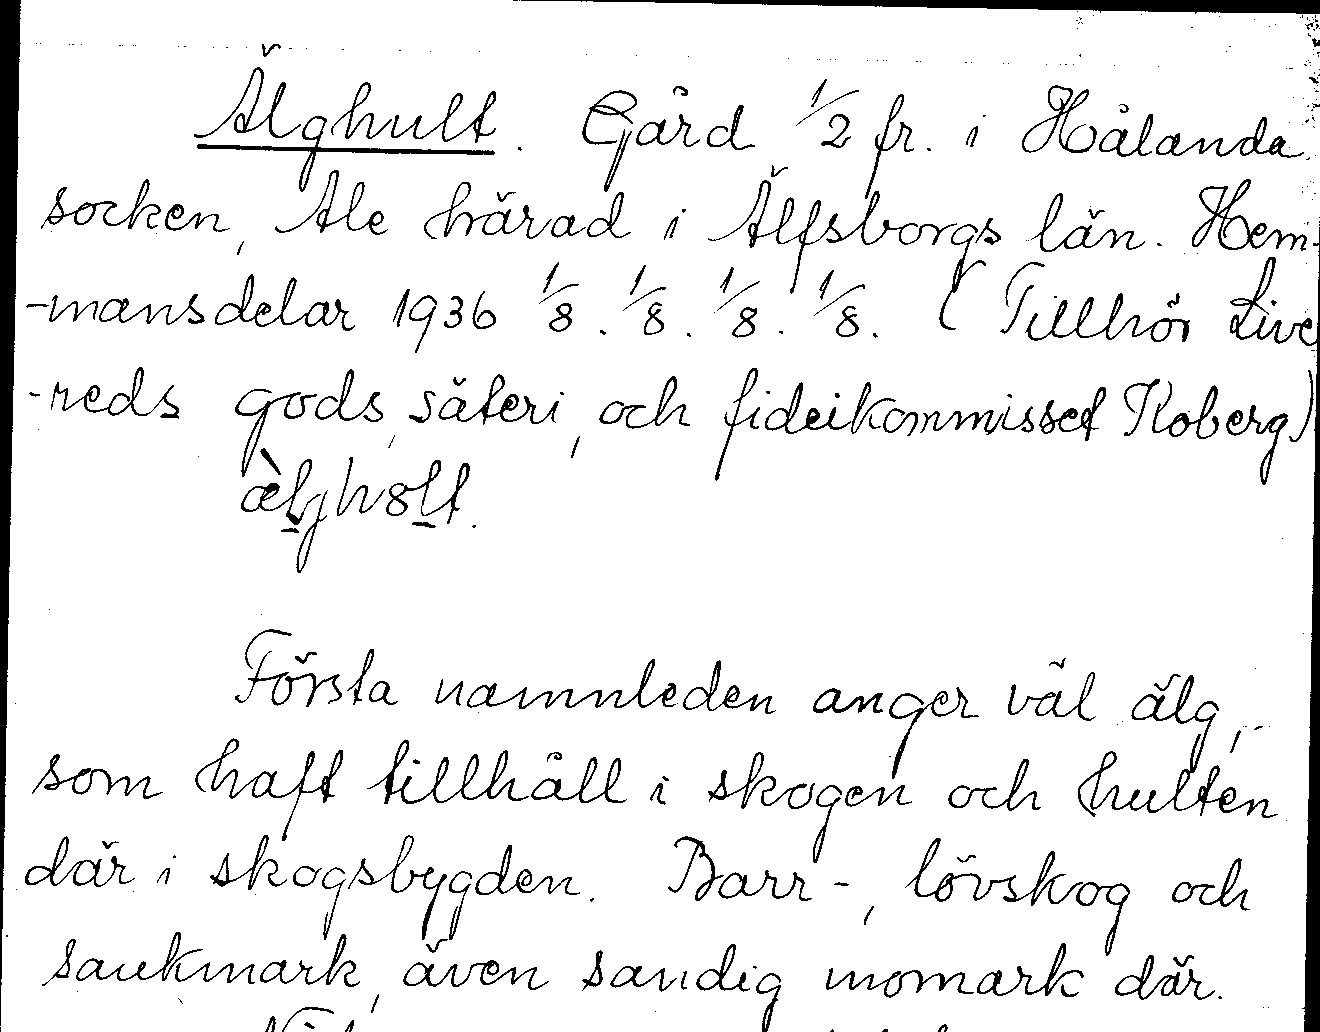 Älghult. Gård 1/2 fr. i Hålanda
socken, Ale härad i Älfsborgs län. Hem-
-mansdelar 1936 1/8. 1/8. 1/8. 1/8. (Tillhör Live
-reds gods, säteri, och fideikommisset Koberg)
æ̀ljhȣlt.
Första namnleden anger väl älg,
som haft tillhåll i skogen och hulten
där i skogsbygden. Barr-, lövskog och
sankmark, även sandig momark där.